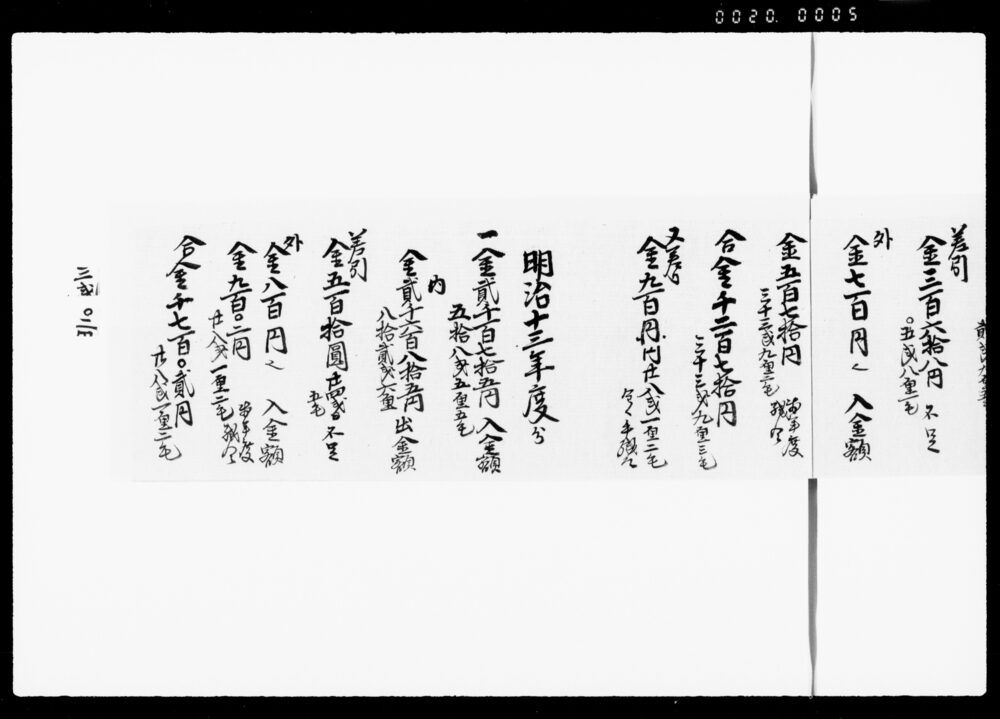 0020.0005
差引
金三百六拾八円 不足
〇五戋八厘二毛
外
金七百円 入金額
金五百七拾円
三十三戋九厘三毛
合金千二百七拾円
三十三戋九厘三毛
又差引
金九百円〇二円廿八戋一厘二毛
明治十三年度分
一金貳千百七拾五円 入金額
五拾八戋五厘五毛
内
金貳千六百八拾五円 出金額
八拾貳戋六厘
差引
金五百拾圓廿四戋 不足
五毛
外
金八百円 入金額
金九百〇二円
廿八戋一厘二毛
合金千七百〇貳円
廿八戋一厘二毛